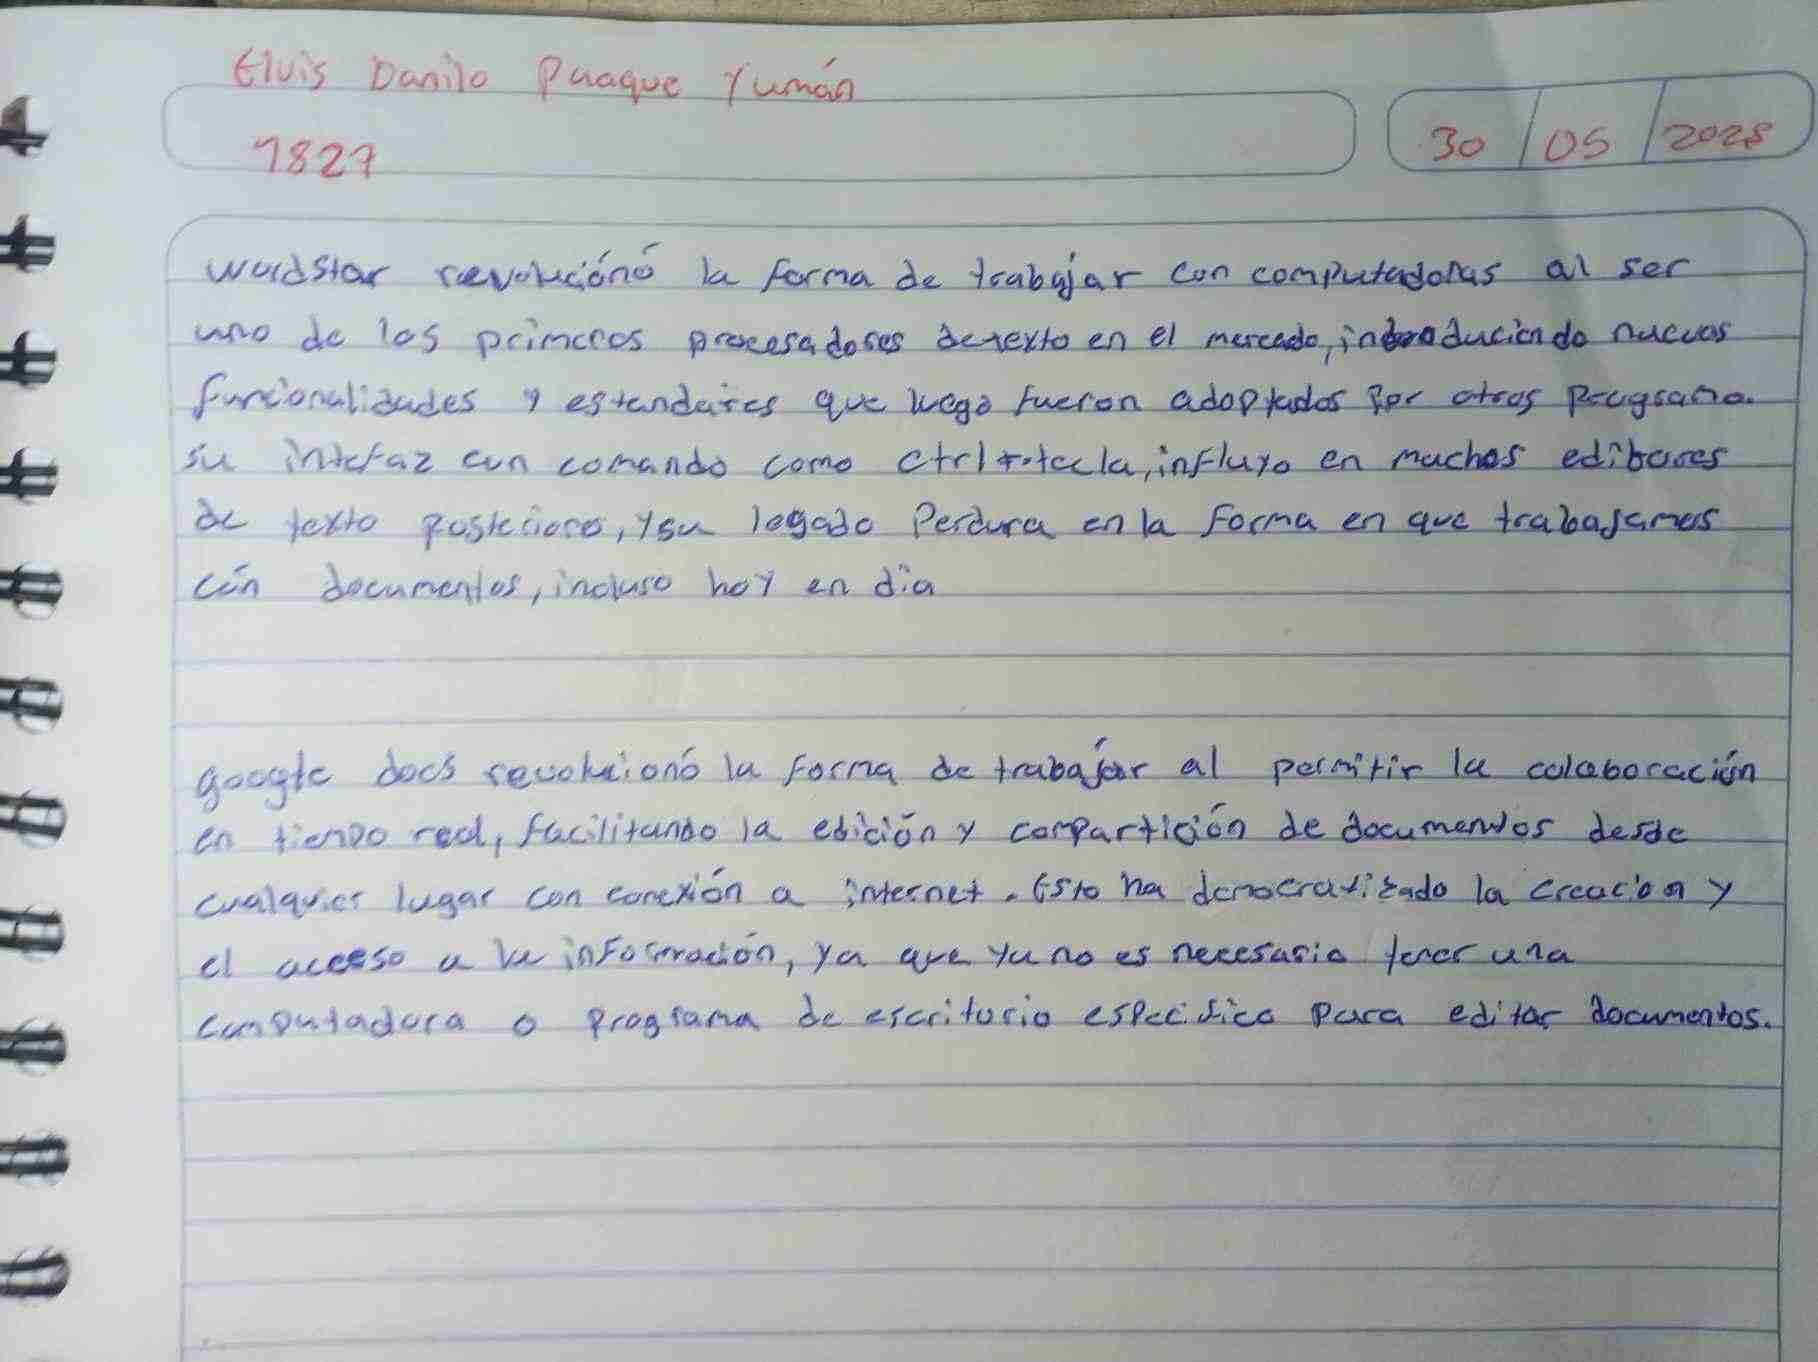 Elvis Danilo Puaque Yumán
1827
30 / 05 / 2025
wordstar revoluciónó la forma de trabajar con computadoras al ser
uno de los primeros procesadores de texto en el mercado, introduciendo nuevas
funcionalidades y estandares que luego fueron adoptados por otros programa.
su interfaz con comando como ctrl+tecla, influyo en muchos editores
de texto posteriore, y su legado Perdura en la forma en que trabajamos
cón documentos, incluso hoy en dia
google docs revolucionó la forma de trabajar al permitir la colaboración
en tiempo real, facilitando la edición y compartición de documentos desde
cualquier lugar con conexión a internet. Esto ha democratizado la creación y
el acceso a la información, ya que ya no es necesario tener una
computadora o programa de escritorio especifico para editar documentos.